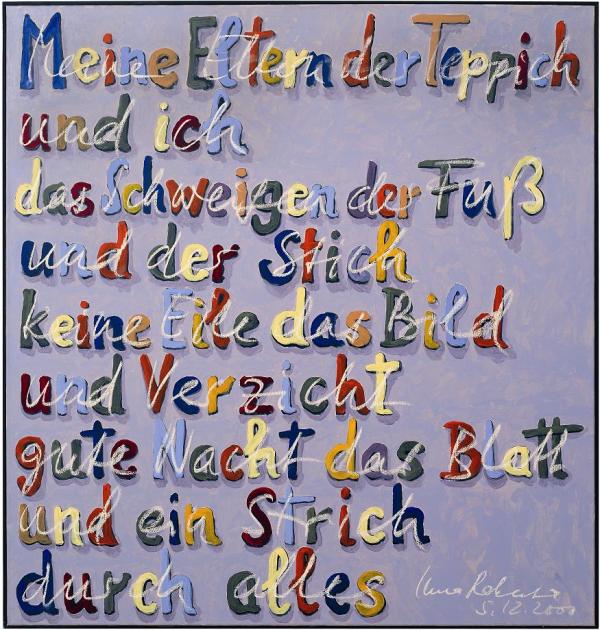 Meine Eltern der Teppich
und ich
das Schweigen der Fuß
und der Stich
keine Eile das Bild
und Verzicht
gute Nacht das Blatt
und ein Strich
durch alles
5.12.2000